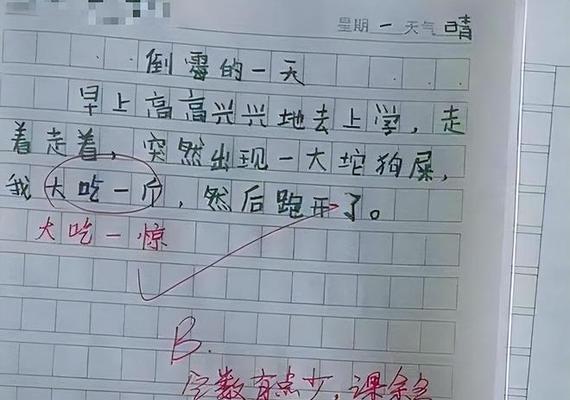 星期 一 天气 晴
倒霉的一天
早上高高兴兴地去上学,走
着走着,突然出现一大坨狗屎,
我大吃一斤,然后跑开了。
大吃一惊
B.
字数有点少,课余